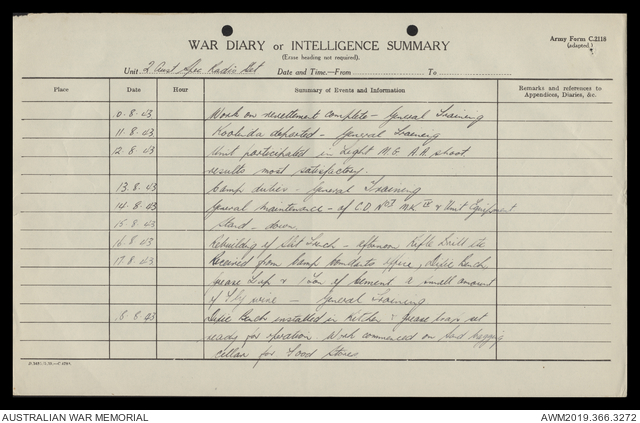 Army Form C.2118
(adapted.)
WAR DIARY or INTELLIGENCE SUMMARY
(Erase heading not required).
Unit 2 Aust Spec Radio Det Date and Time.—From To
Place Date Hour Summary of Events and Information Remarks and references to
Appendices, Diaries, &c.
10.8.43 Work on resettlement complete - General Training
11.8.43 Koolinda departed - General Training
12.8.43 Unit participated in Light M.G. A.A. shoot
results most satisfactory.
13.8.43 Camp duties - General Training
14.8.43 General maintenance - of C.D. No1 MK & Unit Equipment
15.8.43 Stand - down.
16.8.43 Rebuilding of Slit Trench - afternoon Rifle Drill etc
17.8.43 Received from Camp Comdants office, Bench,
grease trap & 1 of Cement a small amount
of Fly wire - General Training
18.8.43 Bench installed in Kitchen & grease trap set
ready for operation Work commenced on Sand bagging
Cellar for Food Store
AUSTRALIAN WAR MEMORIAL AWM2019.366.3272